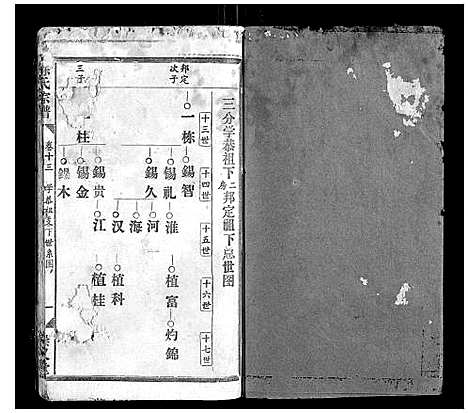 三分学恭祖下二房邦定祖下总世图
十三世
十四世
十五世
十六世
十七世
邦定次子
一栋
锡智
锡礼
淮
植富
灼锦
锡久
河
海
汉
植科
三子
一柱
锡贵
江
植桂
锡金
锡木
氏宗谱
卷十三
学恭祖支下世系图
一